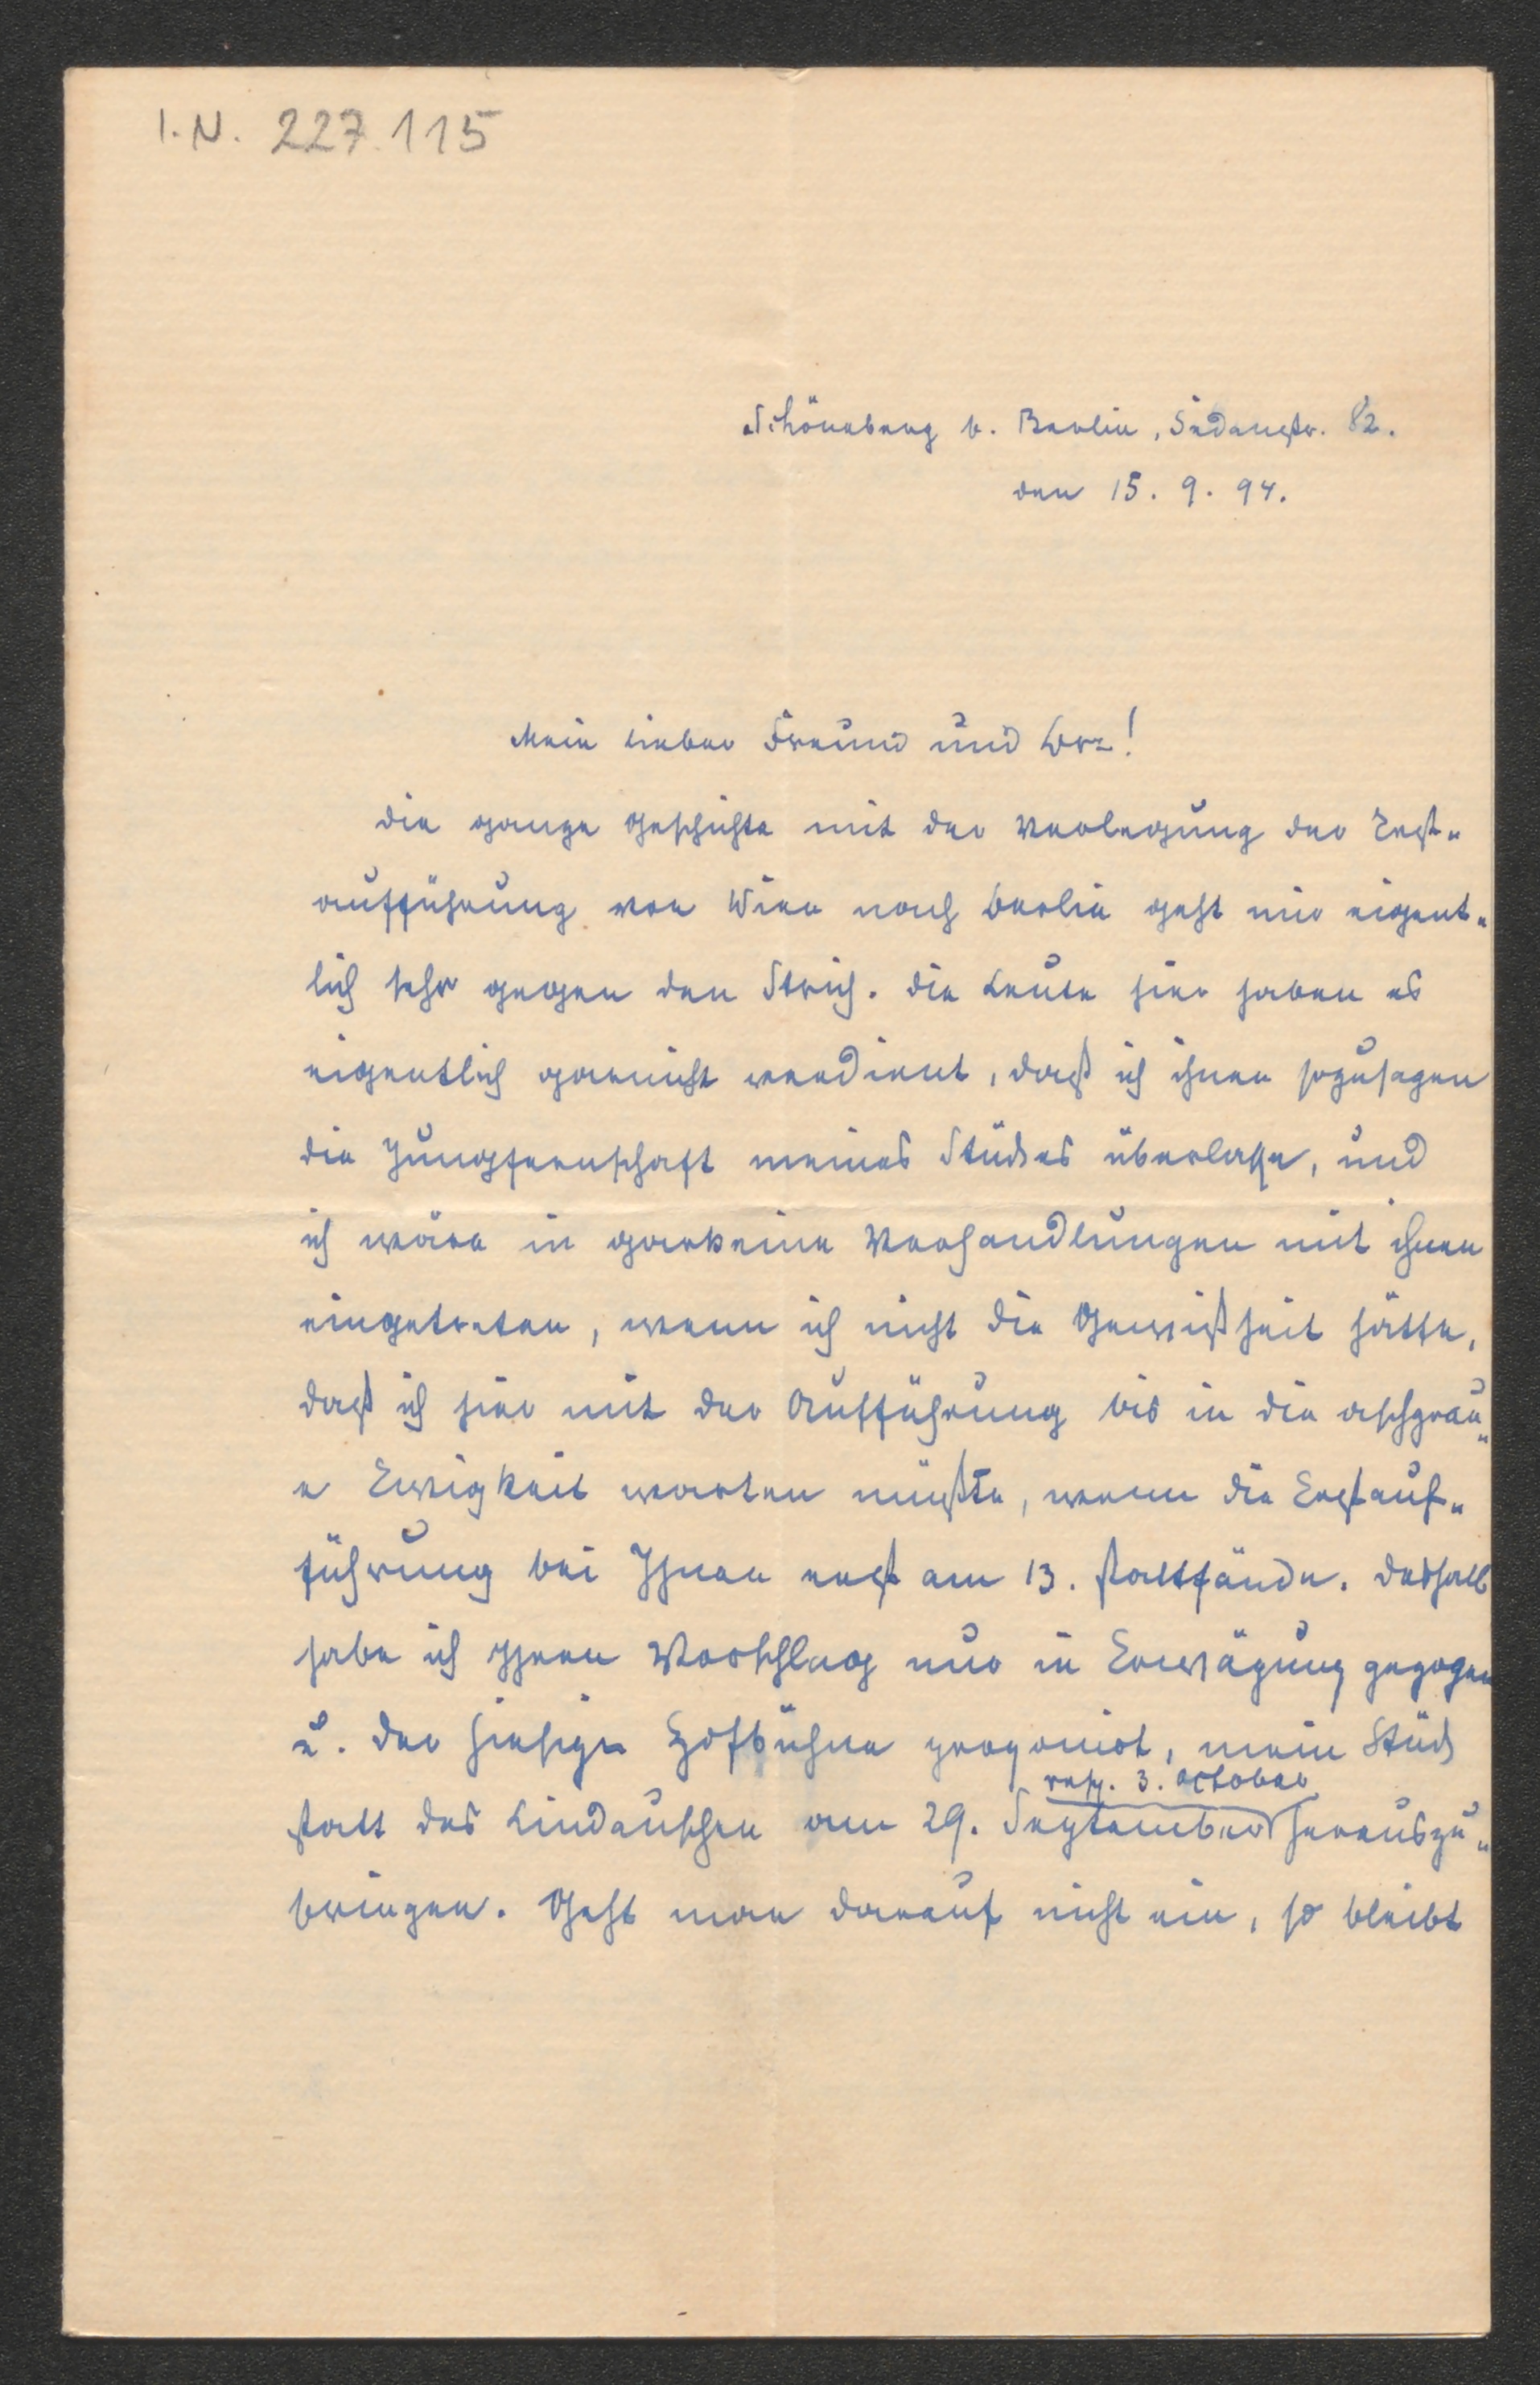 I.N. 227.115
Schöneberg b. Berlin, Sedanstr. 82.
den 15. 9. 94.
Mein lieber Freund und
Die ganze Geschichte mit der Verlegung der Erst-
aufführung von Wien nach Berlin geht mir eigent-
lich sehr gegen den Strich. Die Leute hier haben es
eigentlich garnicht verdient, daß ich ihnen sozusagen
die Jungfernschaft meines Stückes überlasse, und
ich wäre in garkeine Verhandlungen mit ihnen
eingetreten, wenn ich nicht die Gewißheit hätte,
daß ich hier mit der Aufführung bis in die aschgrau-
e Ewigkeit warten müßte, wenn die Erstauf-
führung bei Ihnen erst am 13. stattfände. Deshalb
habe ich Ihren Vorschlag nur in Erwägung gezogen
u. der hiesigen Hofbühne proponirt, mein Stück
resp. 3. October
statt des Lindauschen am 29. September herauszu-
bringen. Geht man darauf nicht ein, so bleibt